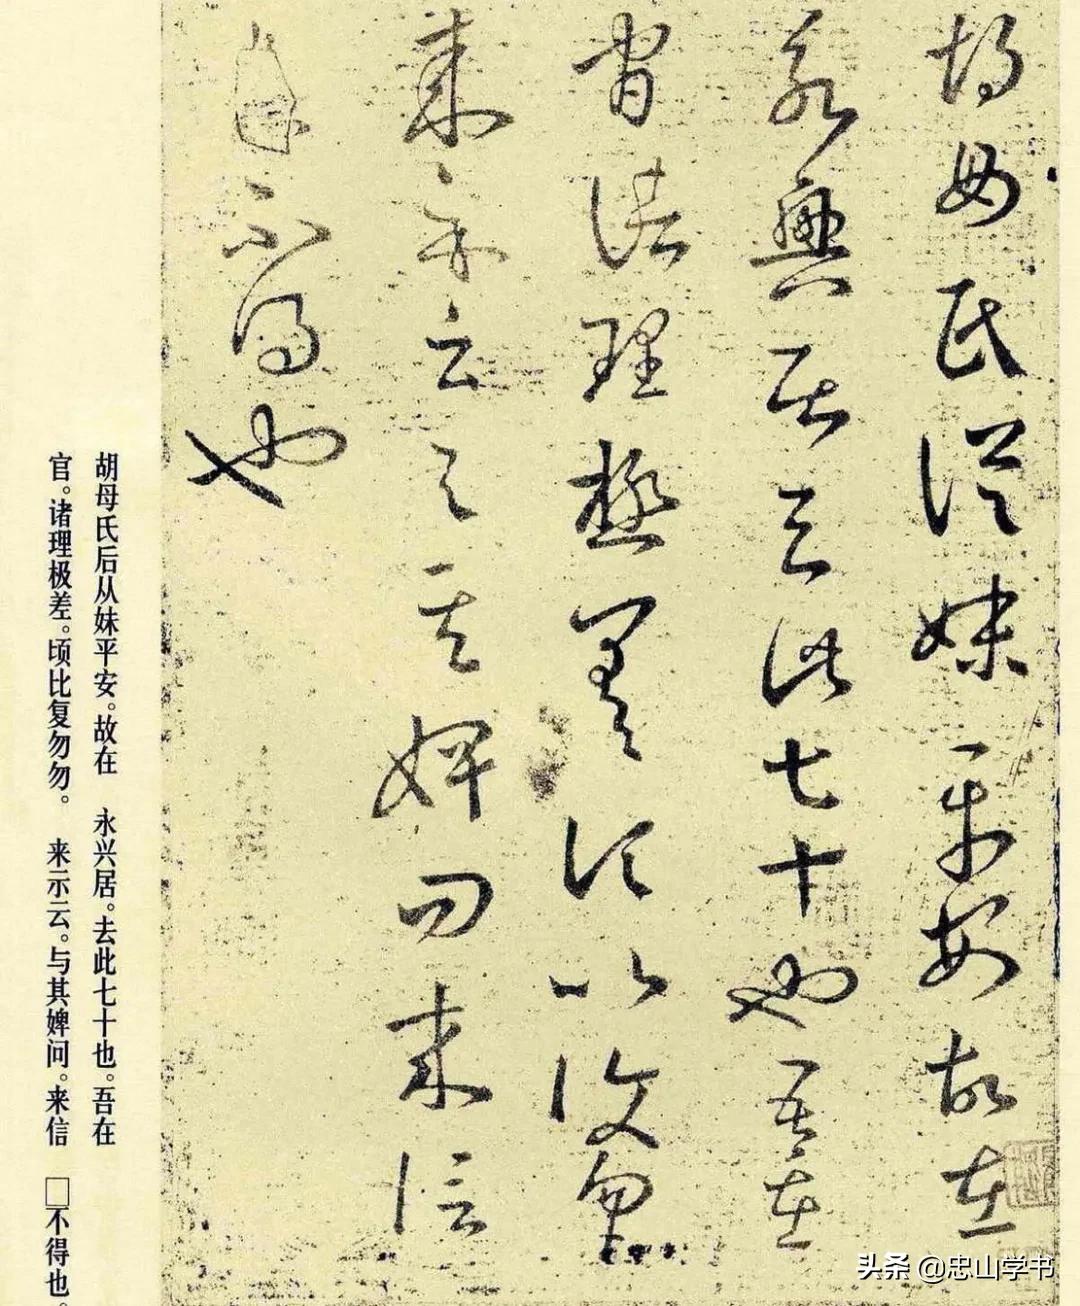 胡母氏從妹平安故在
永興居去此七十也吾在
官諸理極差頃比復勿勿
來示云與其婢問來信
不得也
胡母氏后从妹平安。故在 永兴居。去此七十也。吾在
官。诸理极差。顷比复勿勿。 来示云。与其婢问。来信 □不得也。
头条 @忠山学书